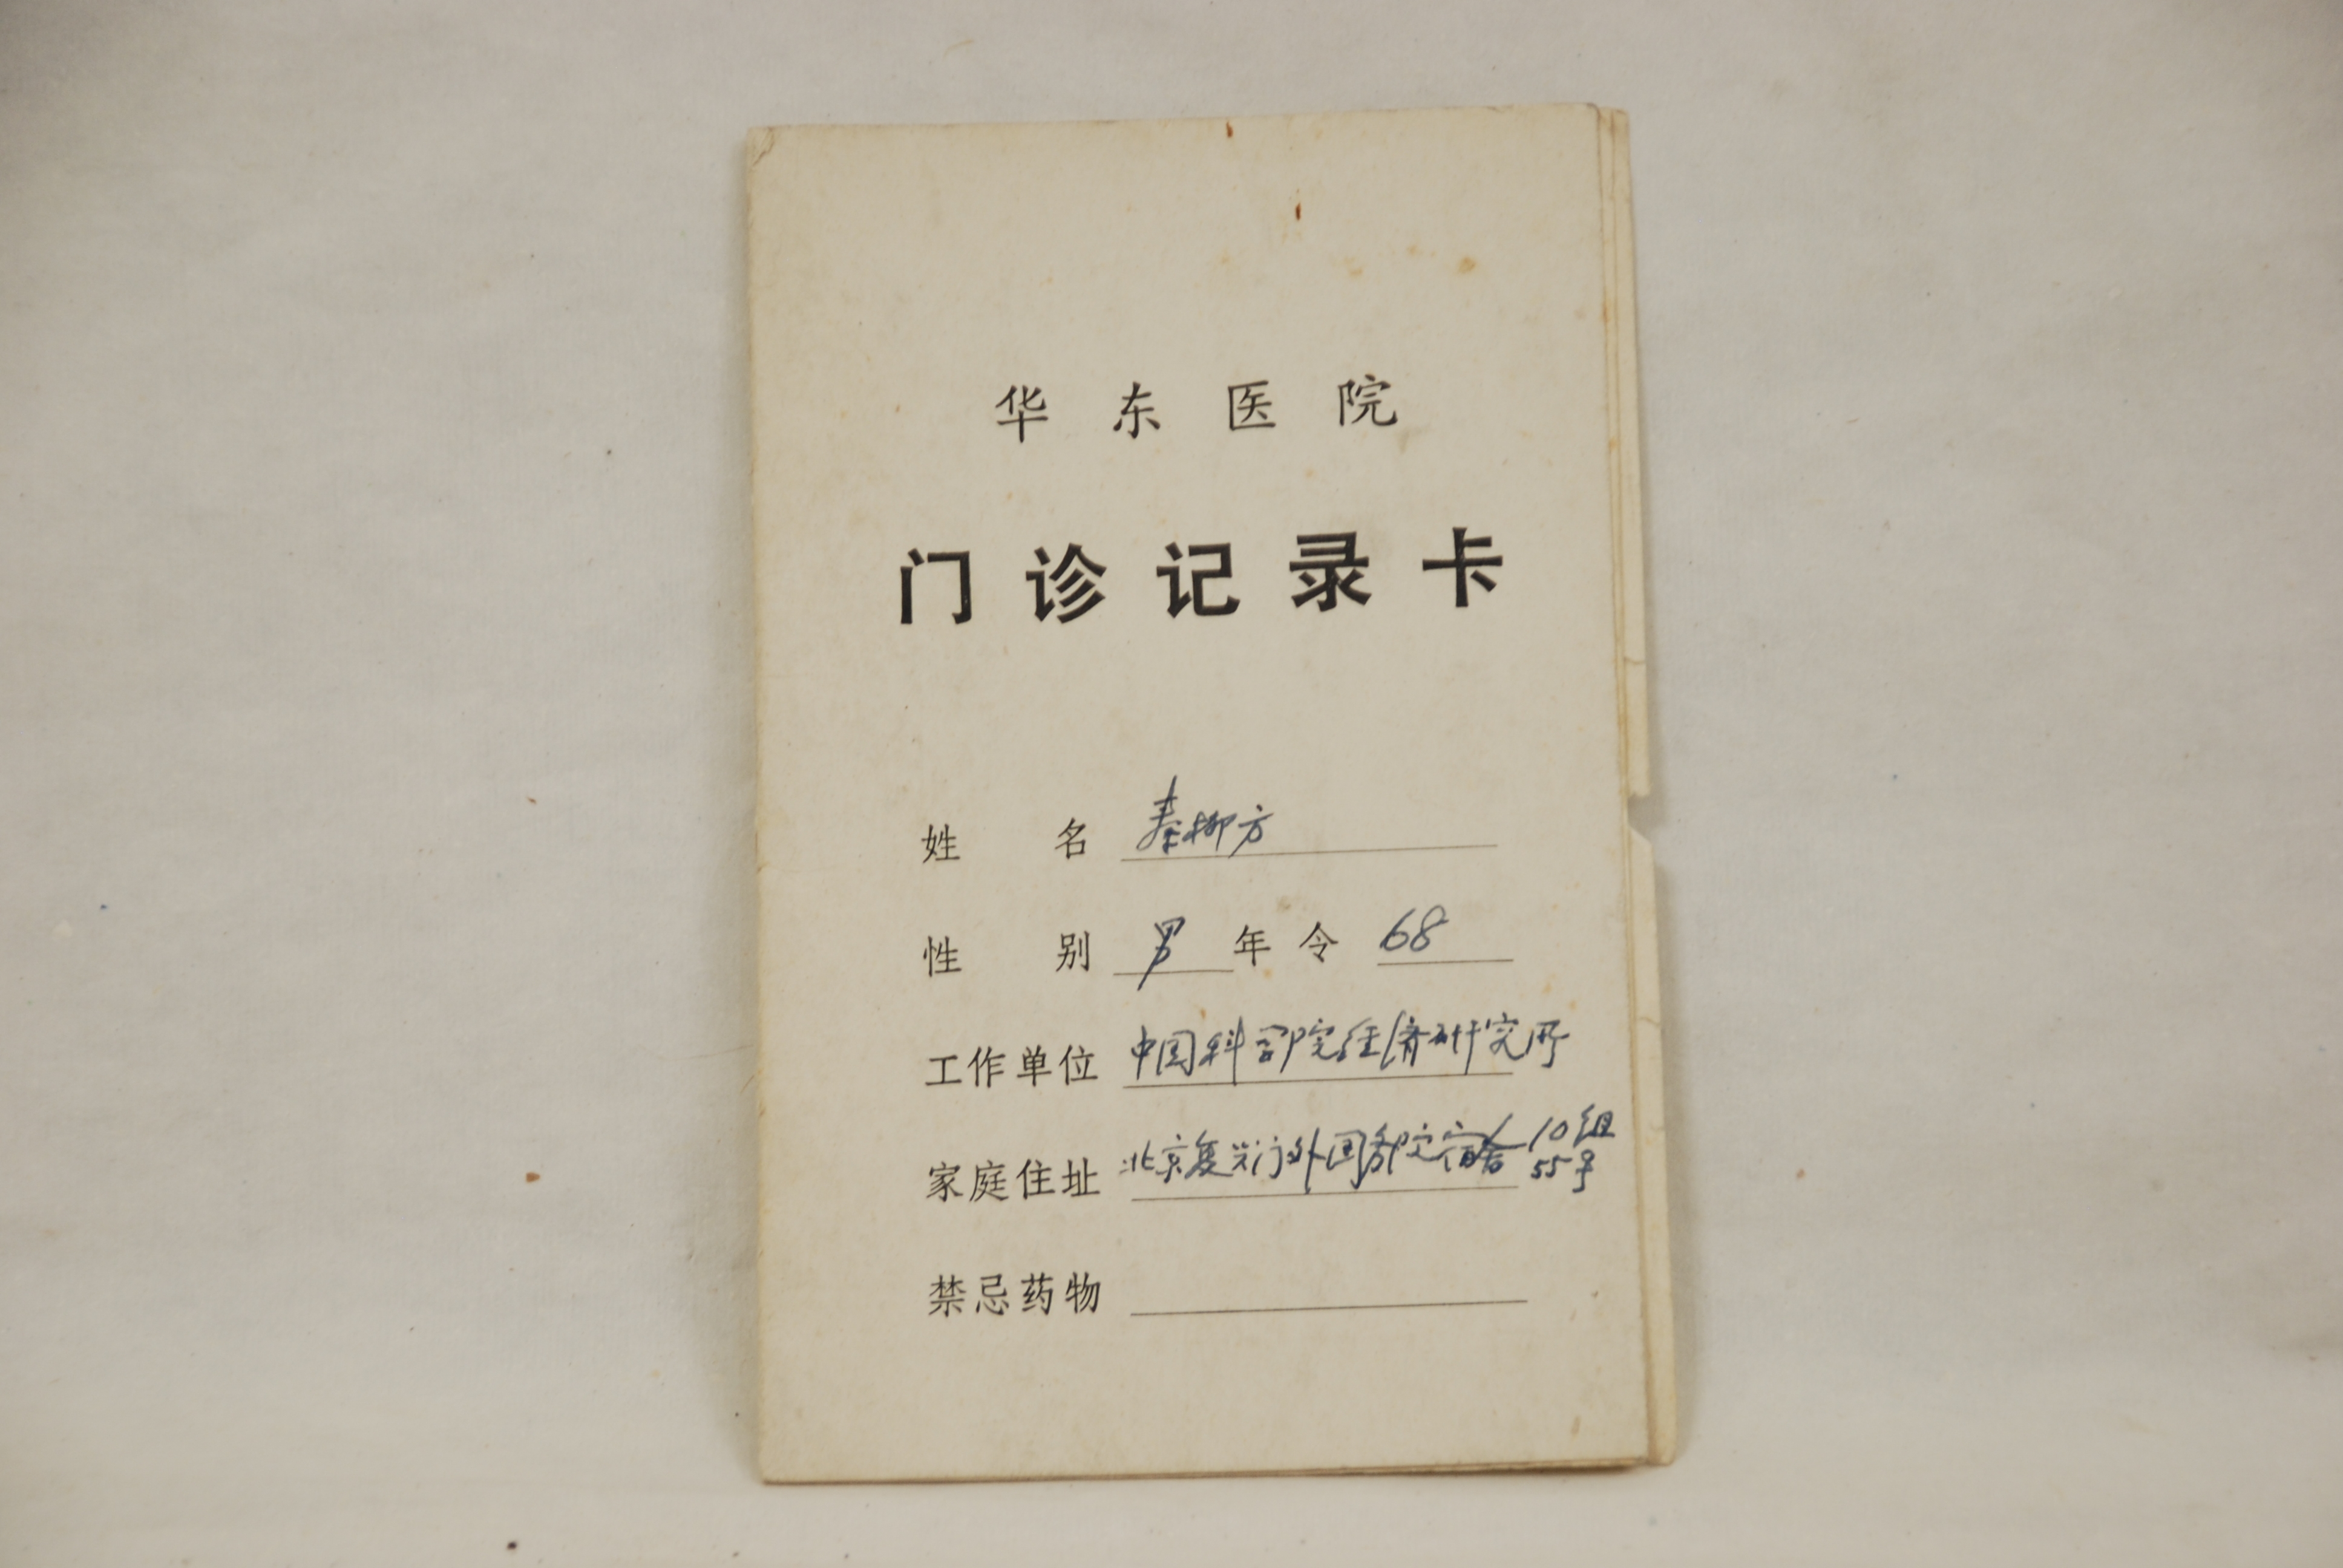 华东医院
门诊记录卡
姓名 秦柳方
性别 男 年令 68
工作单位 中国科学院经济研究所
家庭住址 北京复兴门外国务院宿舍 10组
55号
禁忌药物